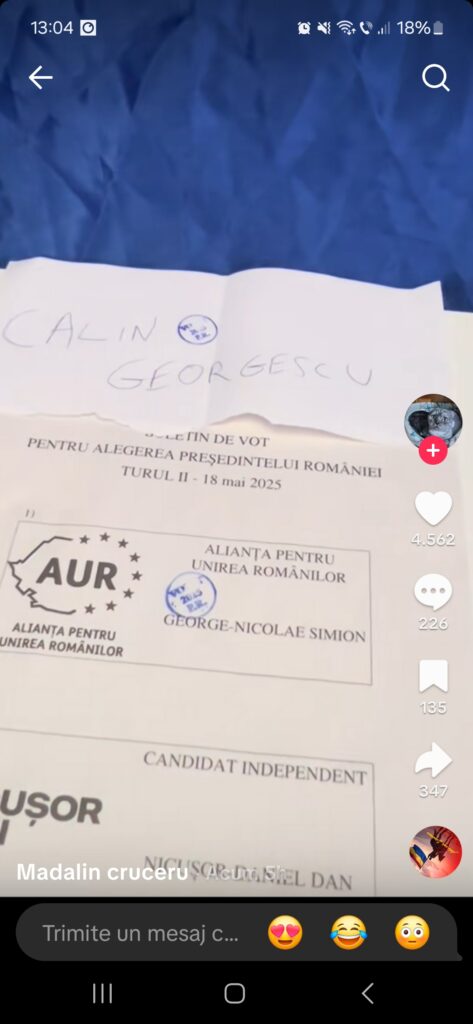 13:04
18%
CALIN
GEORGESCU
BULETIN DE VOT
PENTRU ALEGEREA PREȘEDINTELUI ROMÂNIEI
TURUL II - 18 mai 2025
1)
AUR
ALIANȚA PENTRU
UNIREA ROMÂNILOR
ALIANȚA PENTRU
UNIREA ROMÂNILOR
GEORGE-NICOLAE SIMION
CANDIDAT INDEPENDENT
UȘOR
NICUȘOR-DANIEL DAN
4.562
226
135
347
Madalin cruceru
Acum 5h
Trimite un mesaj c...